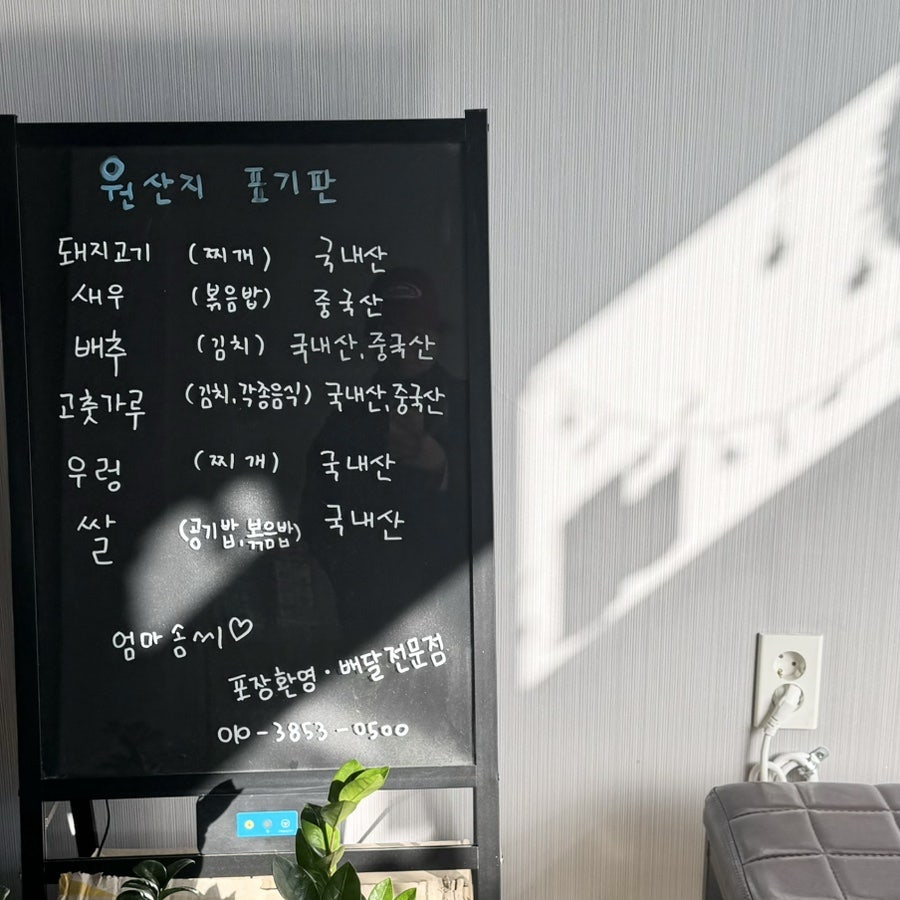 원산지 표기판
돼지고기 (찌개) 국내산
새우 (볶음밥) 중국산
배추 (김치) 국내산,중국산
고춧가루 (김치,각종음식) 국내산,중국산
우렁 (찌개) 국내산
쌀 (공기밥,볶음밥) 국내산
엄마솜씨♡
포장환영·배달전문점
010-3853-0500